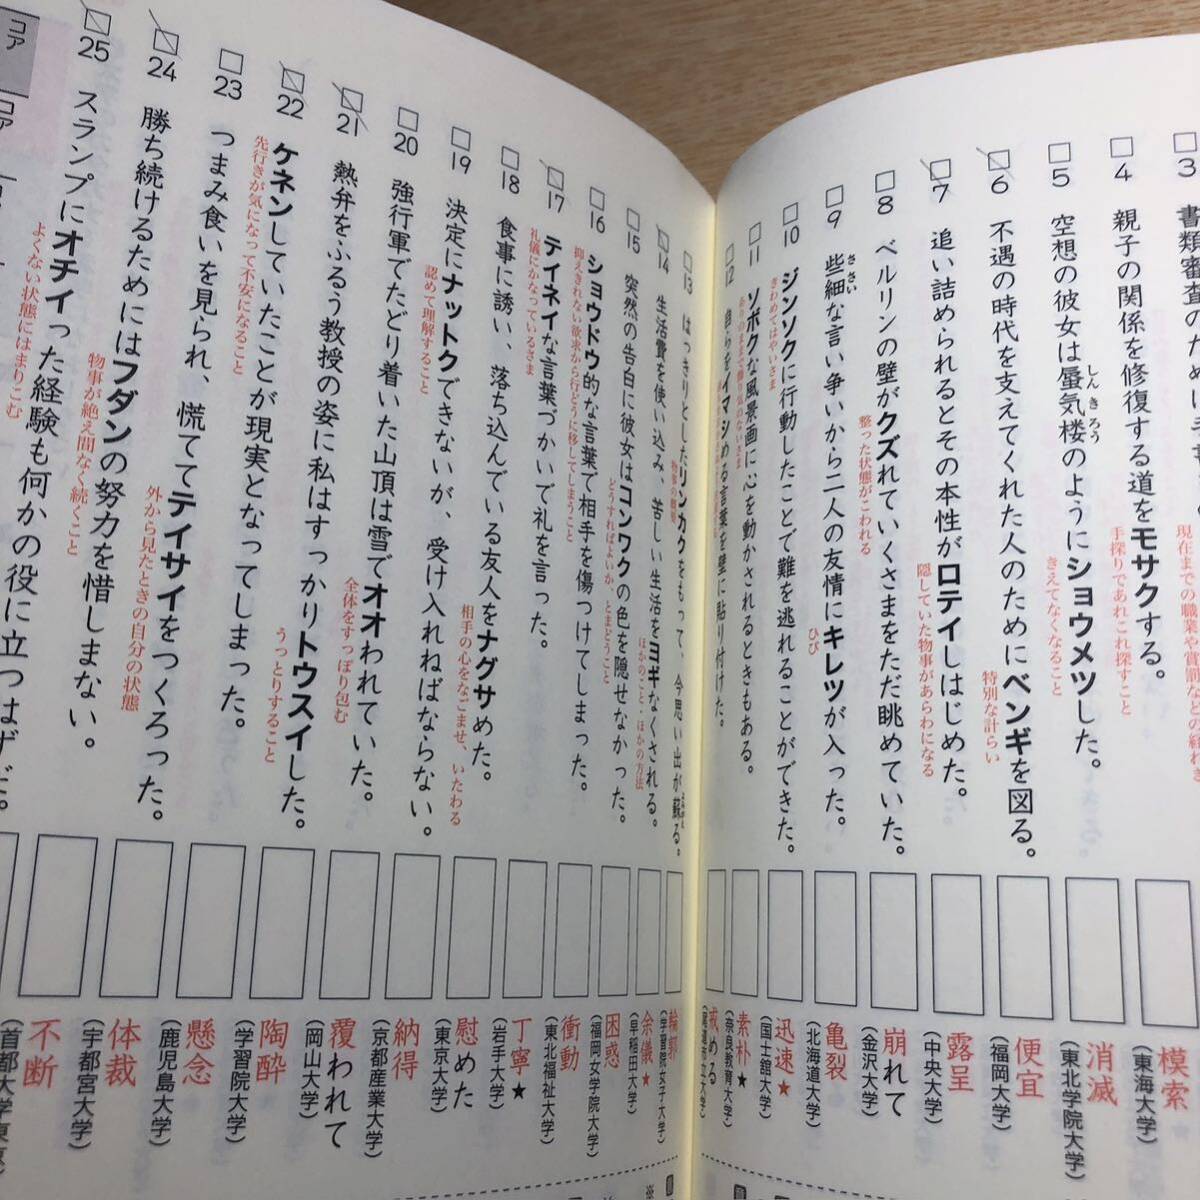 3
書類審査のため
現在までの職業や賞罰などの経れき
4
親子の関係を修復する道をモサクする。
手探りであれこれ探すこと
模索
(東海大学)
5
空想の彼女は蜃気楼のようにショウメツした。
しんきろう
きえてなくなること
消滅
(東北学院大学)
6
不遇の時代を支えてくれた人のためにベンギを図る。
特別な計らい
便宜
(福岡大学)
7
追い詰められるとその本性がロテイしはじめた。
隠していた物事があらわになる
露呈
(中央大学)
8
ベルリンの壁がクズれていくさまをただ眺めていた。
整った状態がこわれる
崩れて
(金沢大学)
9
些細な言い争いから二人の友情にキレツが入った。
ささい
ひび
亀裂
(北海道大学)
10
ジンソクに行動したことで難を逃れることができた。
きわめてはやいさま
迅速★
(国士舘大学)
11
ソボクな風景画に心を動かされるときもある。
ありのままで飾り気のないさま
素朴★
(奈良教育大学)
12
自らをイマシめる言葉を壁に貼り付けた。
戒める
(尾道市立大学)
13
はっきりとしたリンカクをもって、今思い出が蘇る。
物事の概要
輪郭
(学習院女子大学)
14
生活費を使い込み、苦しい生活をヨギなくされる。
ほかのこと・ほかの方法
余儀★
(早稲田大学)
15
突然の告白に彼女はコンワクの色を隠せなかった。
どうすればよいか、とまどうこと
困惑
(福岡女学院大学)
16
ショウドウ的な言葉で相手を傷つけてしまった。
抑えきれない欲求から行どうに移してしまうこと
衝動
(東北福祉大学)
17
テイネイな言葉づかいで礼を言った。
礼儀にかなっているさま
丁寧★
(岩手大学)
18
食事に誘い、落ち込んでいる友人をナグサめた。
相手の心をなごませ、いたわる
慰めた
(東京大学)
19
決定にナットクできないが、受け入れねばならない。
認めて理解すること
納得
(京都産業大学)
20
強行軍でたどり着いた山頂は雪でオオわれていた。
全体をすっぽり包む
覆われて
(岡山大学)
21
熱弁をふるう教授の姿に私はすっかりトウスイした。
うっとりすること
陶酔
(学習院大学)
22
ケネンしていたことが現実となってしまった。
先行きが気になって不安になること
懸念
(鹿児島大学)
23
つまみ食いを見られ、慌ててテイサイをつくろった。
外から見たときの自分の状態
体裁
(宇都宮大学)
24
勝ち続けるためにはフダンの努力を惜しまない。
物事が絶え間なく続くこと
不断
25
スランプにオチイった経験も何かの役に立つはずだ。
よくない状態にはまりこむ
コア
コア